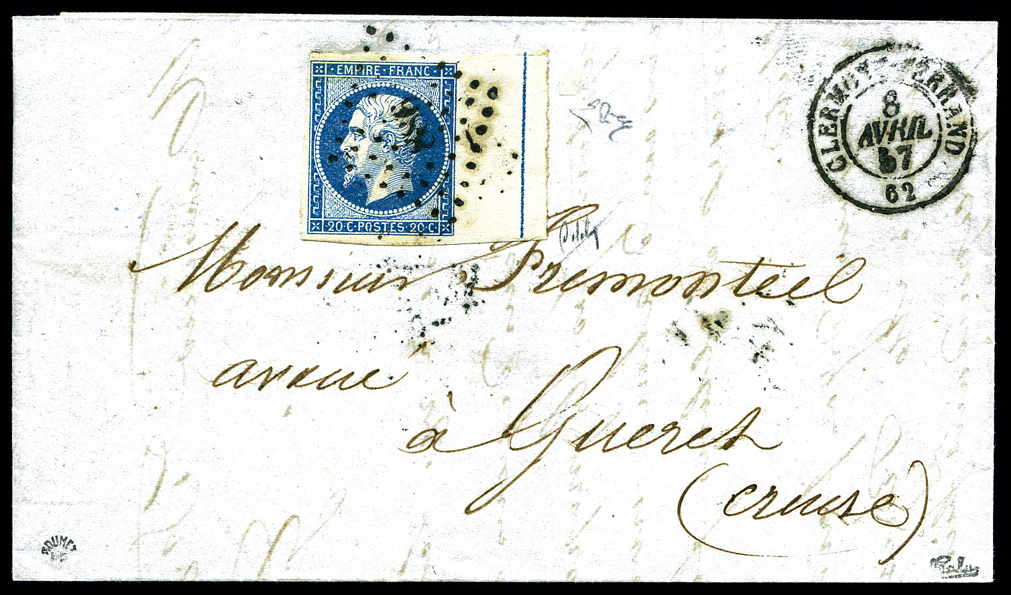 EMPIRE FRANC
20·C·POSTES·20·C
CLERMONT-FERRAND
8
AVRIL
57
62
Monsieur Fremonteil
avoué
à Gueret
(creuse)
ROUMET